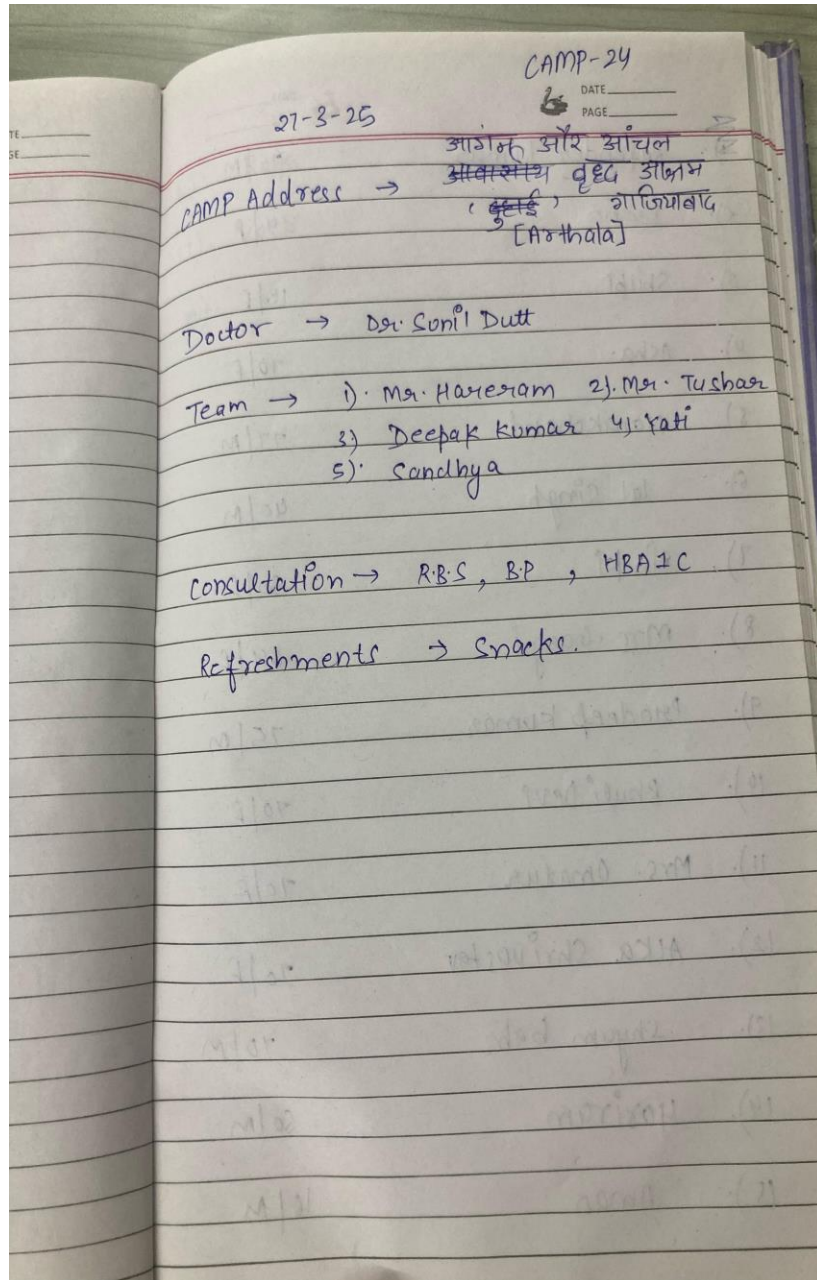 CAMP-24
DATE
PAGE
27-3-25
आगंन और आंचल
CAMP Address → आवासीय वृध्द आश्रम
( दुहाई ) गाजियाबाद
[Arthala]
Doctor → Dr. Sunil Dutt
Team → 1). Mr. Hareram 2). Mr. Tushar
3) Deepak Kumar 4). Yati
5). Sandhya
Consultation → R.B.S, B.P , HBA1C
Refreshments → Snacks.